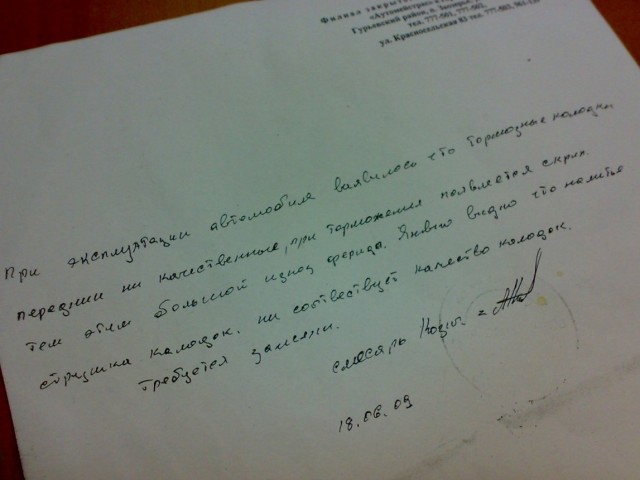 Филиал закрыт
«Аутомейстрис
Гурьевский район, п. Заозерье,
тел. 777-001, 777-002,
ул. Красносельская 83 тел. 777-003,
При эксплуатации автомобиля ваявилось что тормозные колодки
передним ни качественные, при торможения появляется скрип.
тем этим большой износ ферида. Явьно видно что
стружка калодок. ни соотвествует качество колодок.
требуется замены.
слесарь
18.06.09